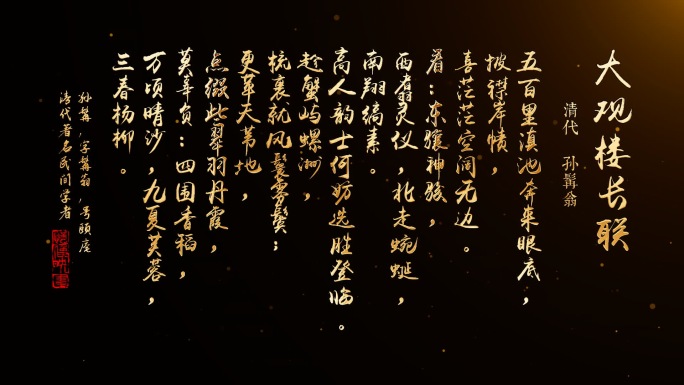 大观楼长联
清代 孙髯翁
五百里滇池奔来眼底，
披襟岸帻，
喜茫茫空阔无边。
看：东骧神骏，
西翥灵仪，北走蜿蜒，
南翔缟素。
高人韵士何妨选胜登临。
趁蟹屿螺洲，
梳裹就风鬟雾鬓；
更苹天苇地，
点缀些翠羽丹霞，
莫辜负：四围香稻，
万顷晴沙，九夏芙蓉，
三春杨柳。
孙髯，字髯翁，号颐庵
清代著名民间学者